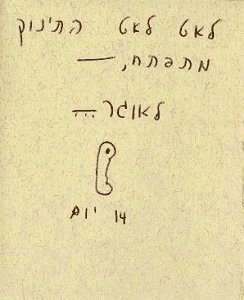 לאט לאט התינוק
מתפתח, —
לאוגר ...
14 יום